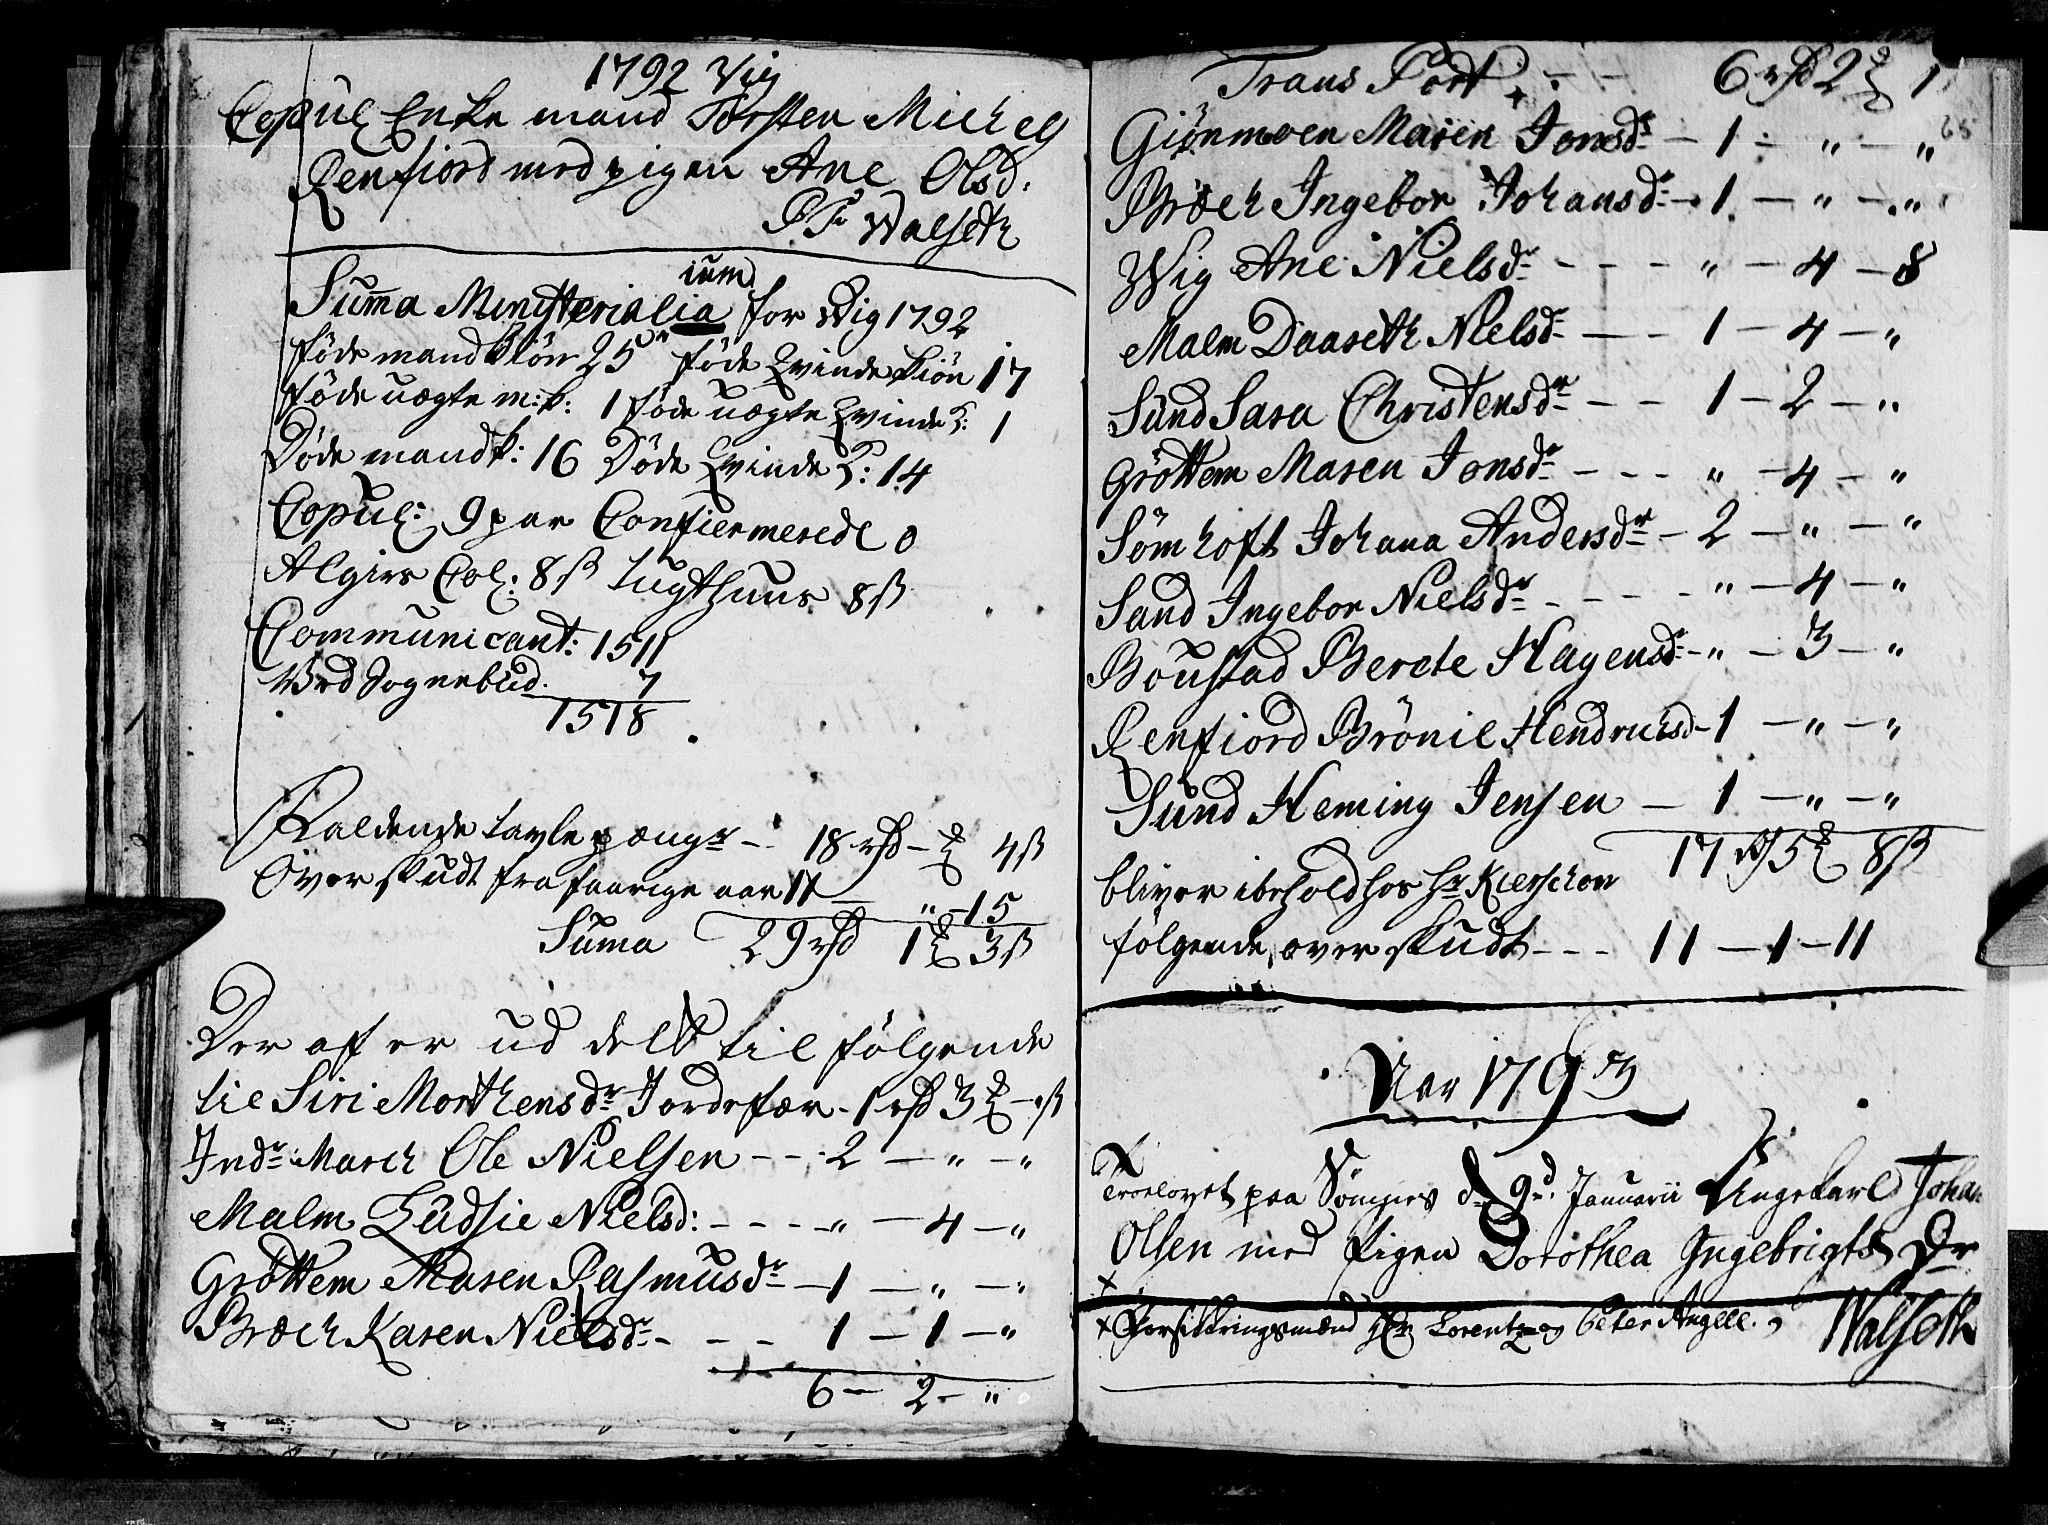 1792 Vig
Copul Enke mand Torsten Michels
Renfiord med pigen Ane Olsd.
Walseth
Suma Ministerialia ium for Wig 1792
føde mandkiön 25 føde Qvinde kiön 17
føde uægte m: k: 1 føde uægte Qvinde K: 1
Døde mandk: 16 Døde Qvinde K: 14
Copul: 9 par Confiermerede 0
Algirs Col: 8 ß tugthuus 8 ß
Communicant: 1511
Ved Sognebud. 7
1518
Faldende tavle pængr - 18 rd - 4 ß
Over skudt fra faarige aar 11 — „ — 15
Suma 29 rd 1 3 ß
Der af er ud delt til følgende
til Siri Morthensdr Jordefær - 1 rd 3 — „ ß
Indr: March Ole Nielsen - - 2 — „ — „
Malm Ludsie Nielsd: - - - „ — 4 — „
Grøttem Maren Rasmusdr — 1 — „ — „
Broch Karen Nielsdr - - - 1 — 1 — „
6 — 2 — „
Trans Port - - 6 rd 2 1
65
Giönmoen Maren Jonsdr — 1 - „ — „
Broch Ingebor Johansdr - 1 — „ — „
Wig Ane Nielsdr - - - „ — 4 — 8
Malm Daaseth Nielsdr — - 1 — 4 — „
Sund Sara Christensdr - - 1 — 2 — „
Grøttem Maren Jonsdr - - - „ — 4 — „
Sömhoft Johana Andersdr — 2 — „ — „
Sand Ingebor Nielsdr - - - - „ — 4 — „
Boustad Berete Hagensdr - „ — 3 — „
Renfiord Brönil Hendrichsd — 1 — „ — „
Sund Heming Jensen — 1 — „ — „
17 rd 5 8 ß
bliver i behold hos Hr Kierschow
følgende over skudt - - - 11 — 1 — 11
Aar 1793
Troelovet paa Sömnes d. 9d. Januarii Ungekarl Johan
Olsen med Pigen Dorothea Ingebrigts Dr
x
x Forsikringsmænd Hr Lorentz og Peter Angell.
Walseth